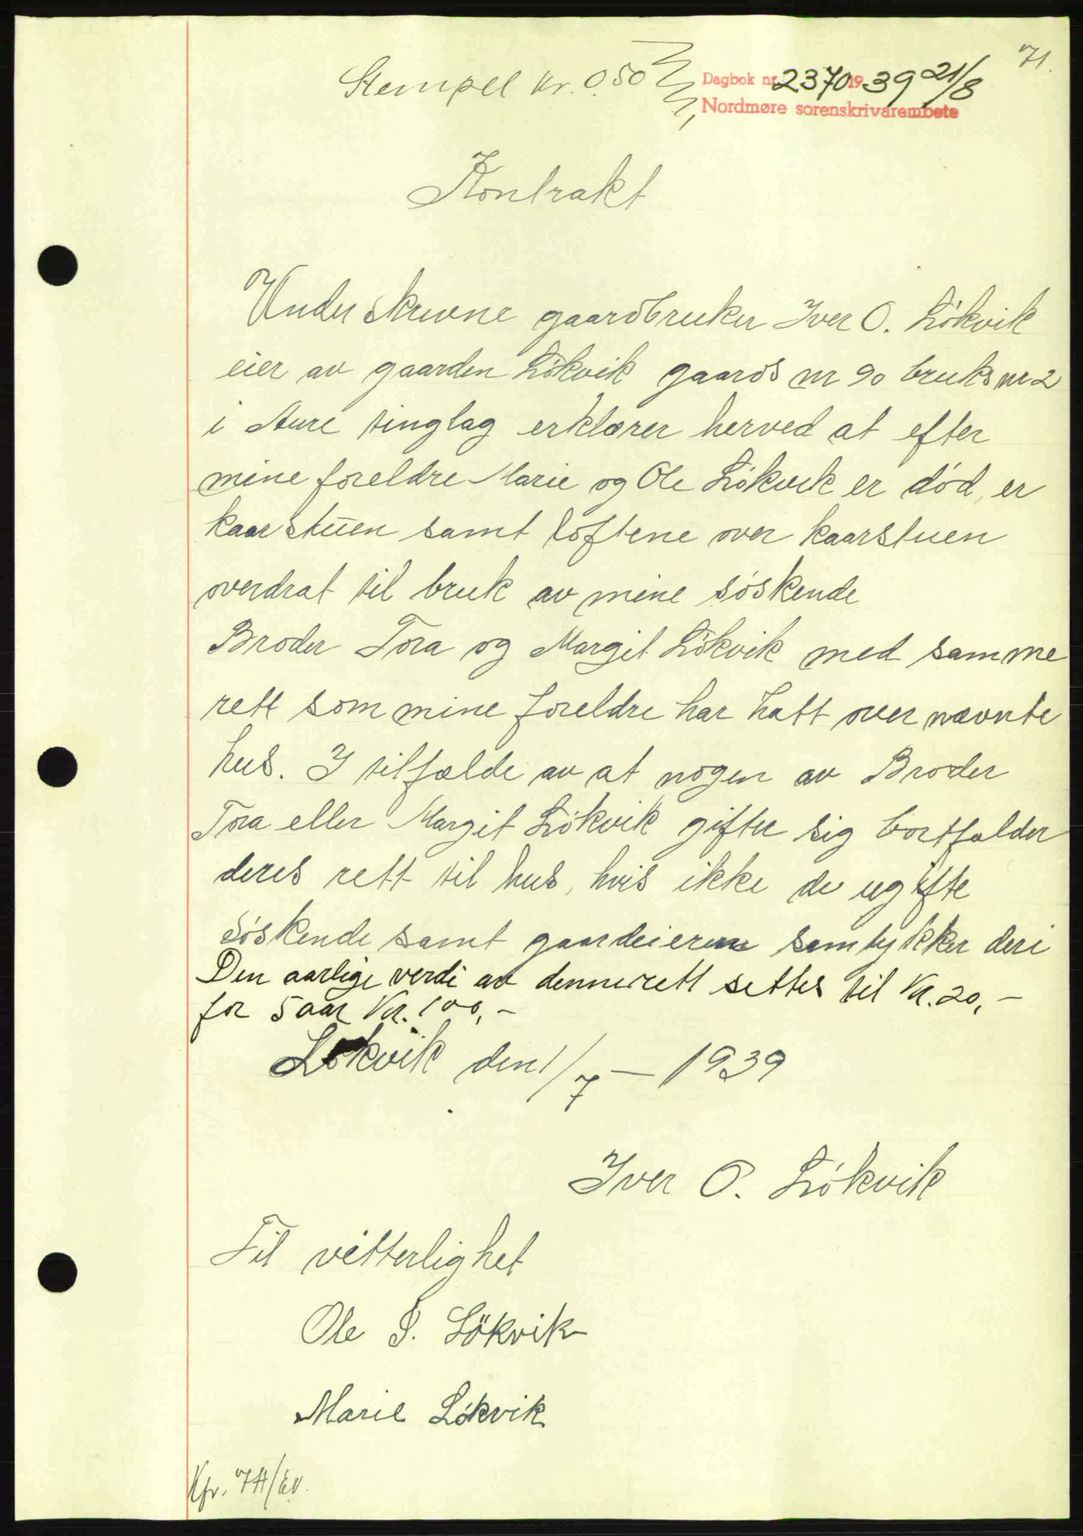 71.
Stempel kr. 0.50
Dagbok nr. 2370 1939 21/8
Nordmøre sorenskrivarembete
Kontrakt
Underskrevne gaardbruker Iver O. Løkvik
eier av gaarden Løkvik gaards nr 90 bruks nr 2
i Aure tinglag erklærer herved at efter
mine foreldre Marie og Ole Løkvik er død, er
kaarstuen samt loftene over kaarstuen
overdrat til bruk av mine søskende
Broder Tora og Margit Løkvik med samme
rett som mine foreldre har hatt over nævnte
hus. I tilfælde av at nogen av Broder
Tora eller Margit Løkvik gifter sig bortfalder
deres rett til hus, hvis ikke de ugifte
søskende samt gaardeieren samtykker deri
Den aarlige verdi av denne rett settes til Kr. 20,-
for 5 aar Kr. 100,-
Løkvik den 1/7 – 1939
Iver O. Løkvik
Til vitterlighet
Ole I. Lökvik
Marie Løkvik
Kfr. 7H/EV.